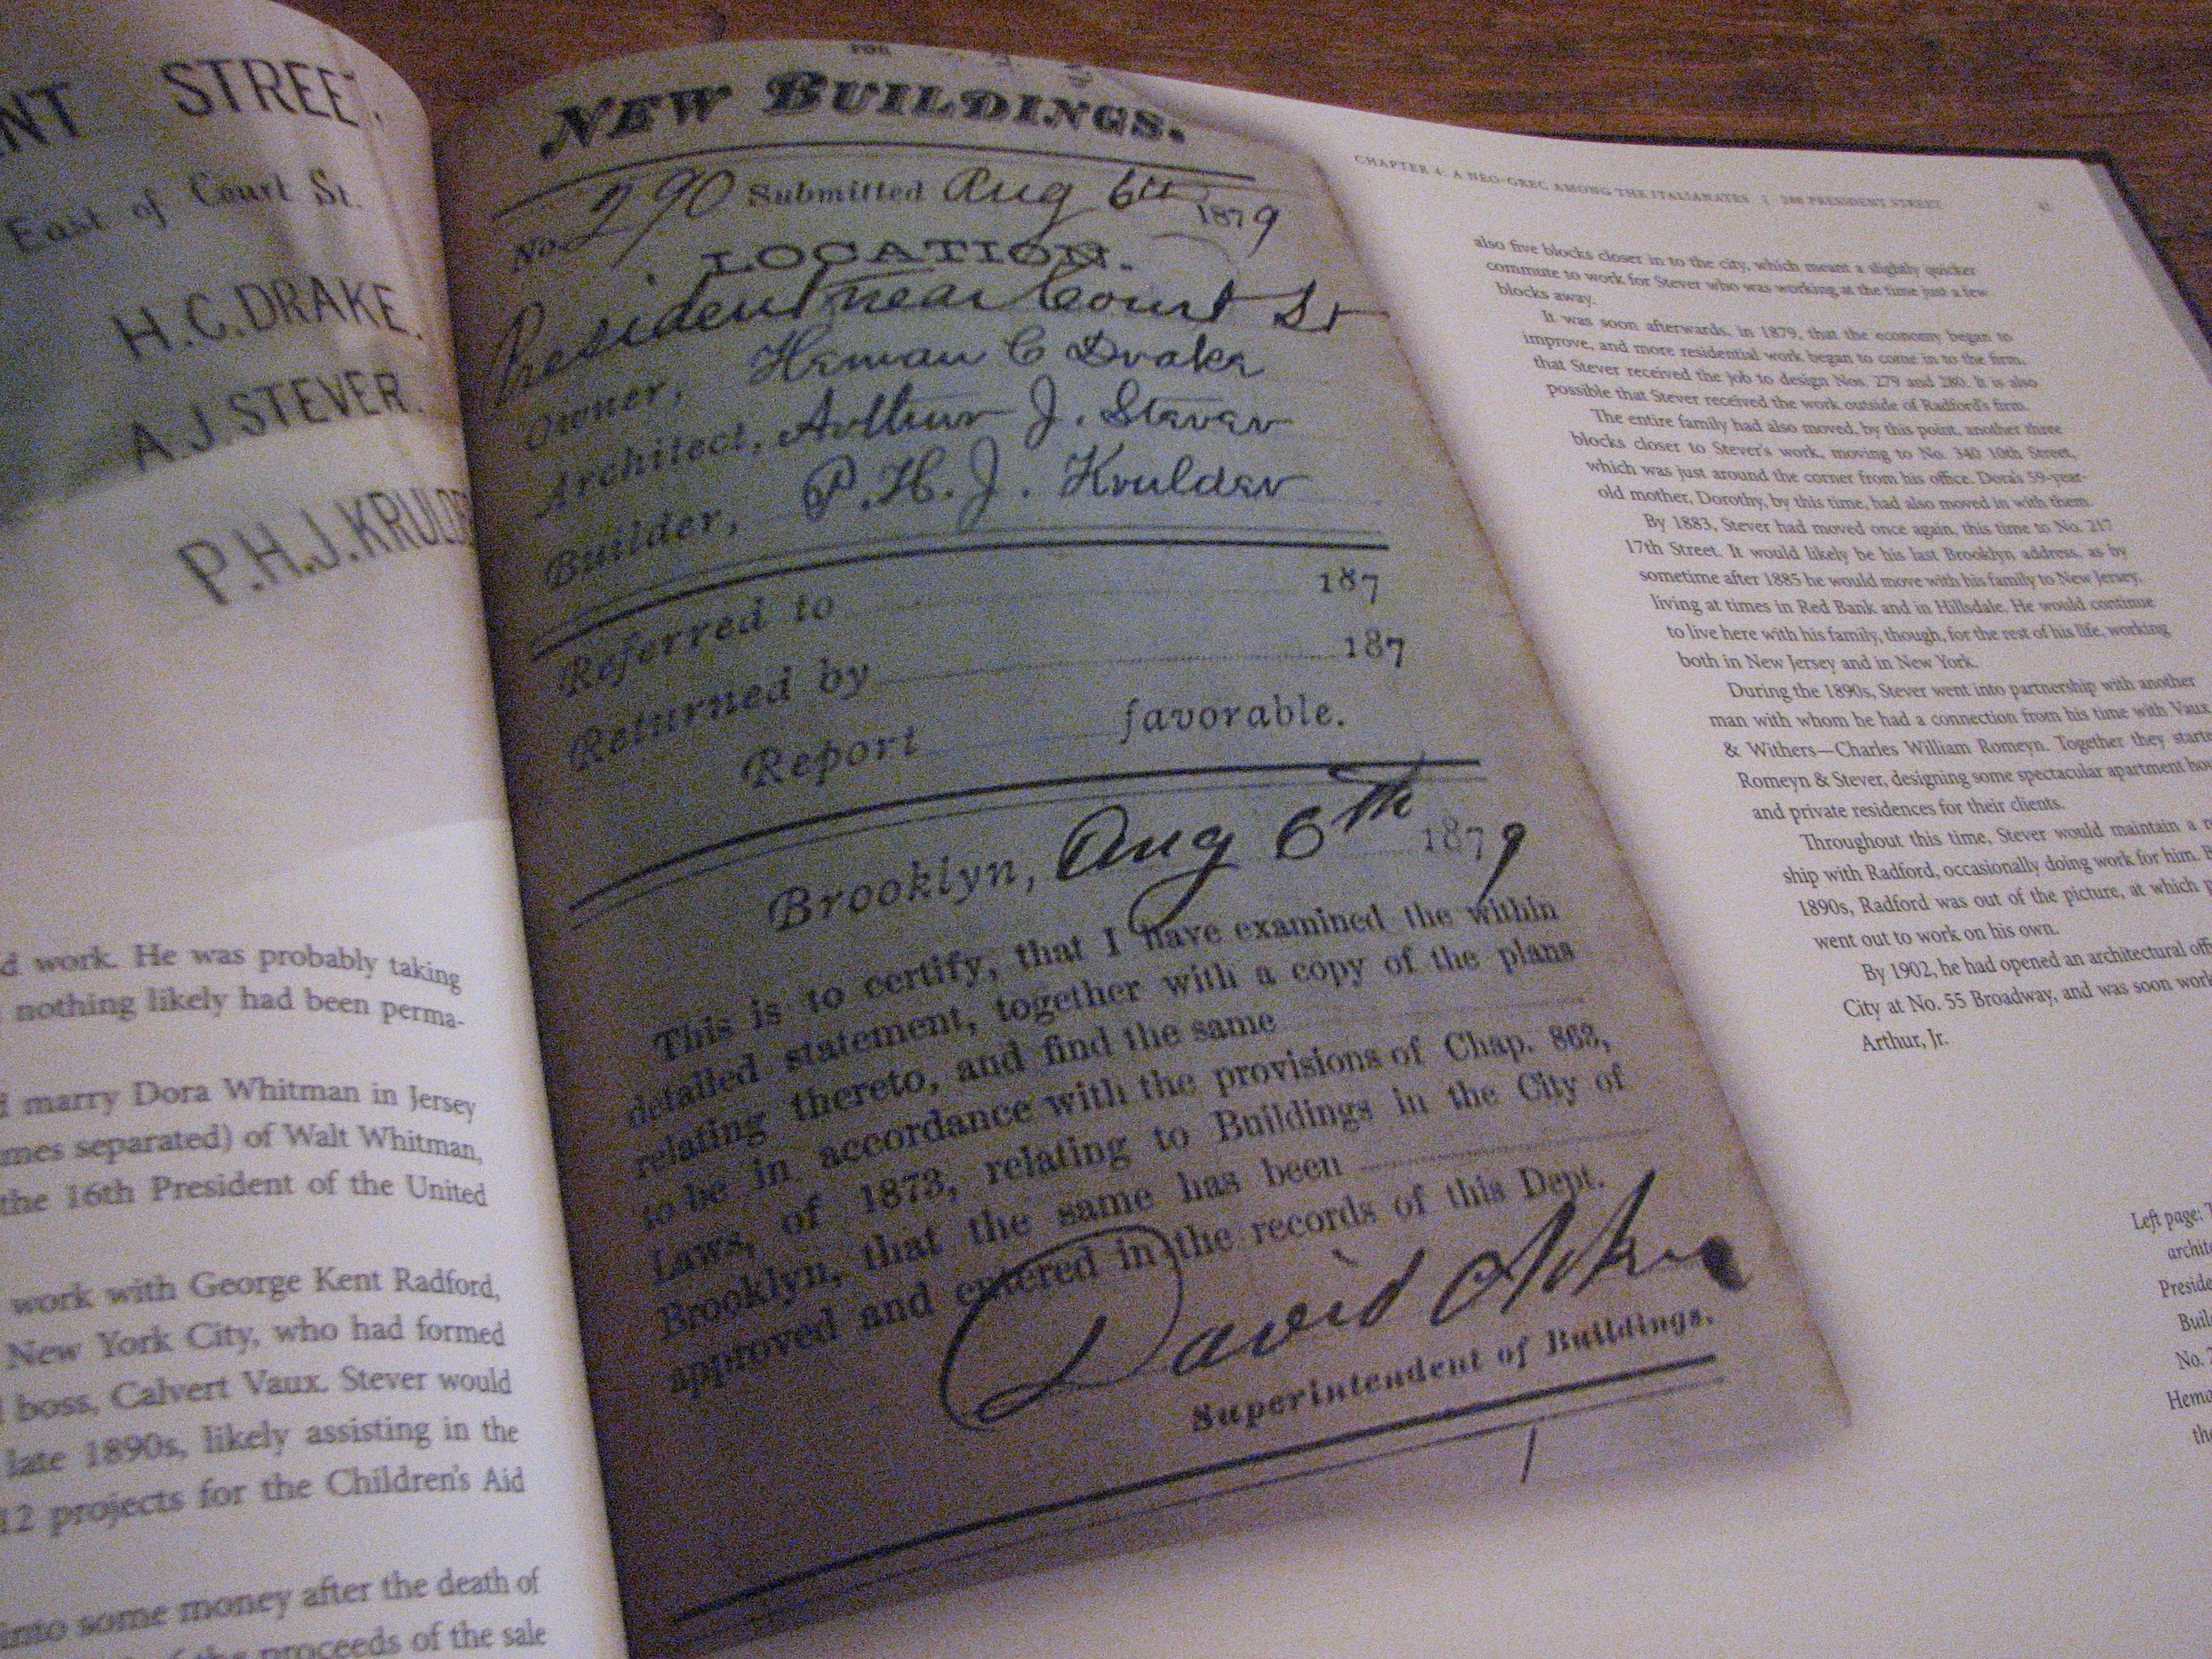 NT STREET,
East of Court St.
H.C.DRAKE.
A.J.STEVER.
P.H.J.KRULD
d work. He was probably taking
nothing likely had been perma-
marry Dora Whitman in Jersey
mes separated) of Walt Whitman,
the 16th President of the United
work with George Kent Radford,
New York City, who had formed
boss, Calvert Vaux. Stever would
late 1890s, likely assisting in the
12 projects for the Children's Aid
into some money after the death of
the proceeds of the sale
FOR
NEW BUILDINGS.
No. 290 Submitted Aug 6th 1879
LOCATION.
President near Court St
Owner, Heman C Drake
Architect, Arthur J. Stever
Builder, P.H.J. Krulder
Referred to 187
Returned by 187
Report favorable.
Brooklyn, Aug 6th 1879
This is to certify, that I have examined the within
detailed statement, together with a copy of the plans
relating thereto, and find the same
to be in accordance with the provisions of Chap. 863,
Laws, of 1873, relating to Buildings in the City of
Brooklyn, that the same has been
approved and entered in the records of this Dept.
David
Superintendent of Buildings.
CHAPTER 4: A NEO-GREC AMONG THE ITALIANATES | 280 PRESIDENT STREET
also five blocks closer in to the city, which meant a slightly quicker
commute to work for Stever who was working at the time just a few
blocks away.
It was soon afterwards, in 1879, that the economy began to
improve, and more residential work began to come in to the firm,
that Stever received the job to design Nos. 279 and 280. It is also
possible that Stever received the work outside of Radford's firm.
The entire family had also moved, by this point, another three
blocks closer to Stever's work, moving to No. 340 10th Street,
which was just around the corner from his office. Dora's 59-year-
old mother, Dorothy, by this time, had also moved in with them.
By 1883, Stever had moved once again, this time to No. 217
17th Street. It would likely be his last Brooklyn address, as by
sometime after 1885 he would move with his family to New Jersey,
living at times in Red Bank and in Hillsdale. He would continue
to live here with his family, though, for the rest of his life, working
both in New Jersey and in New York.
During the 1890s, Stever went into partnership with another
man with whom he had a connection from his time with Vaux
& Withers—Charles William Romeyn. Together they starte
Romeyn & Stever, designing some spectacular apartment hou
and private residences for their clients.
Throughout this time, Stever would maintain a
ship with Radford, occasionally doing work for him. B
1890s, Radford was out of the picture, at which p
went out to work on his own.
By 1902, he had opened an architectural offi
City at No. 55 Broadway, and was soon work
Arthur, Jr.
Left page: T
archite
Preside
Buil
No. 2
Hema
the